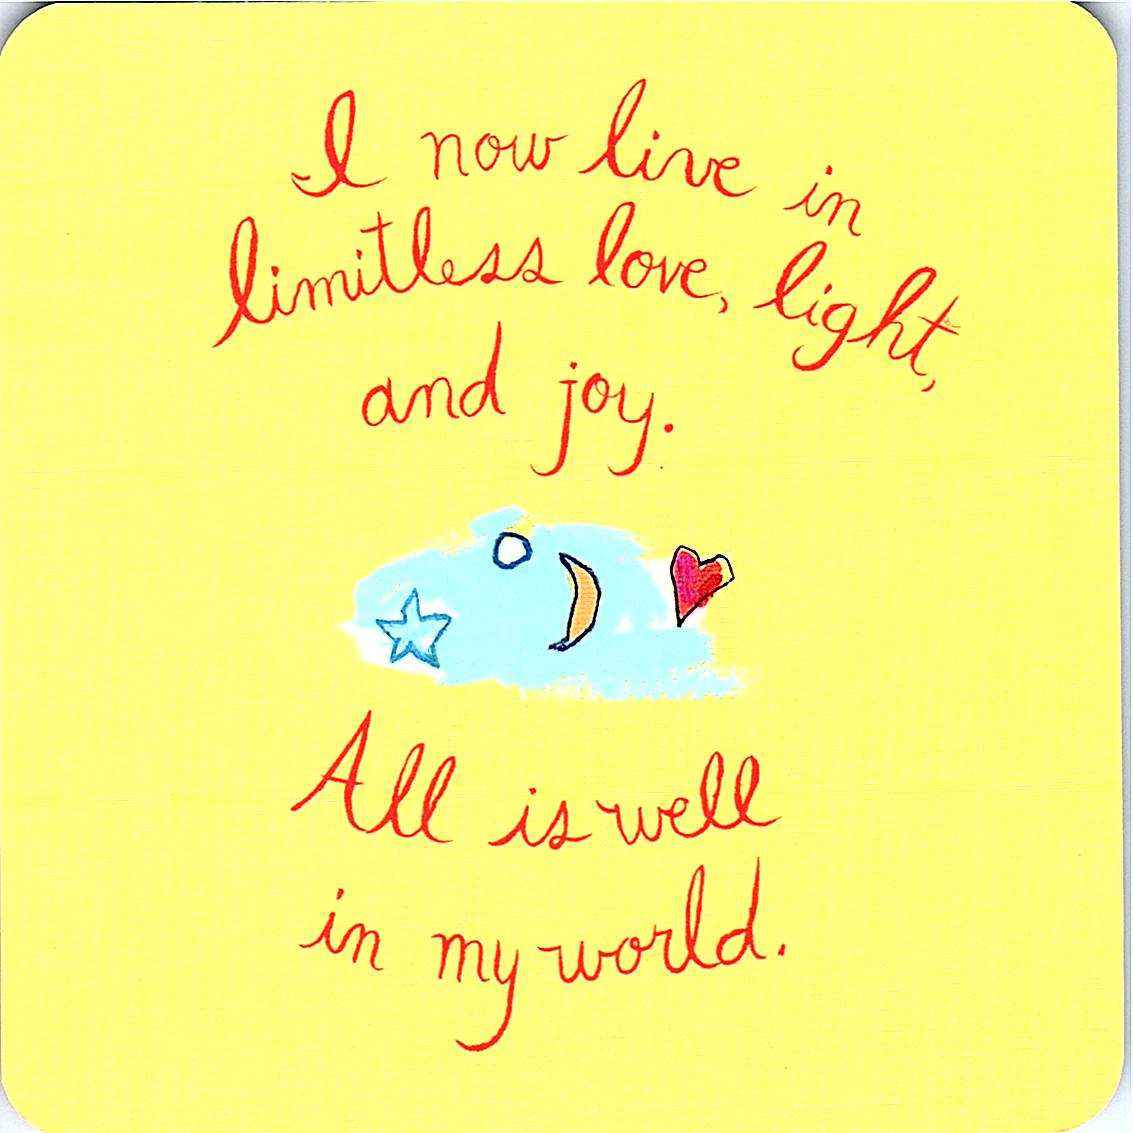 I now live in
limitless love, light,
and joy.
All is well
in my world.